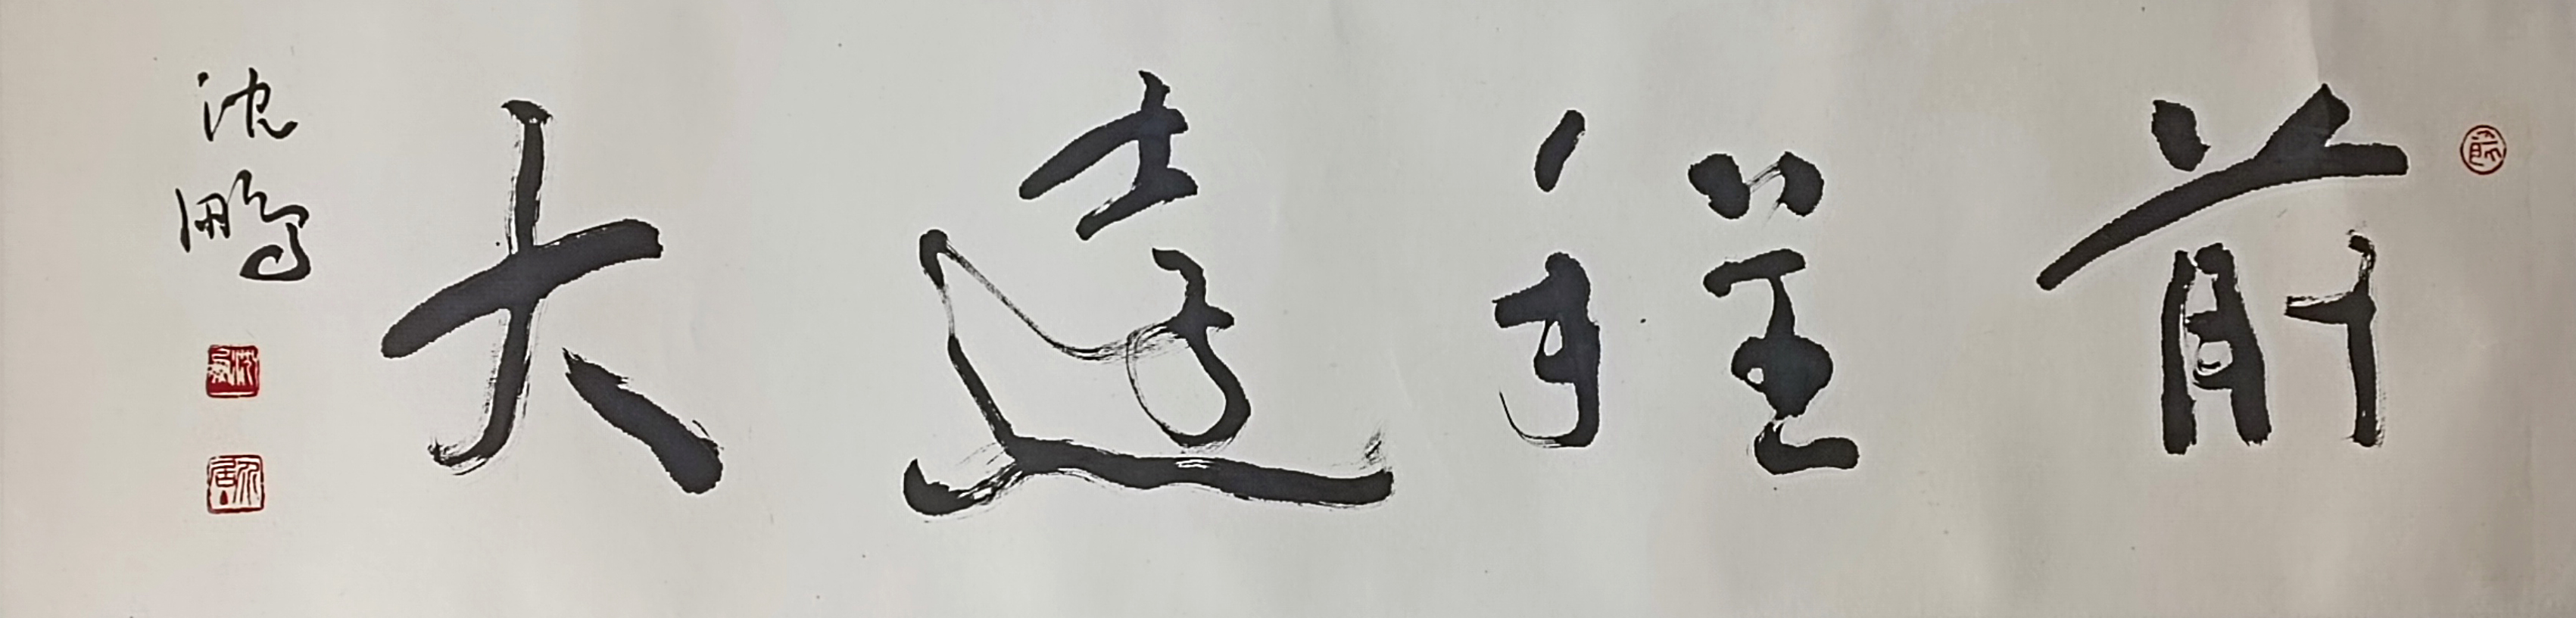 前程遠大
沈鹏